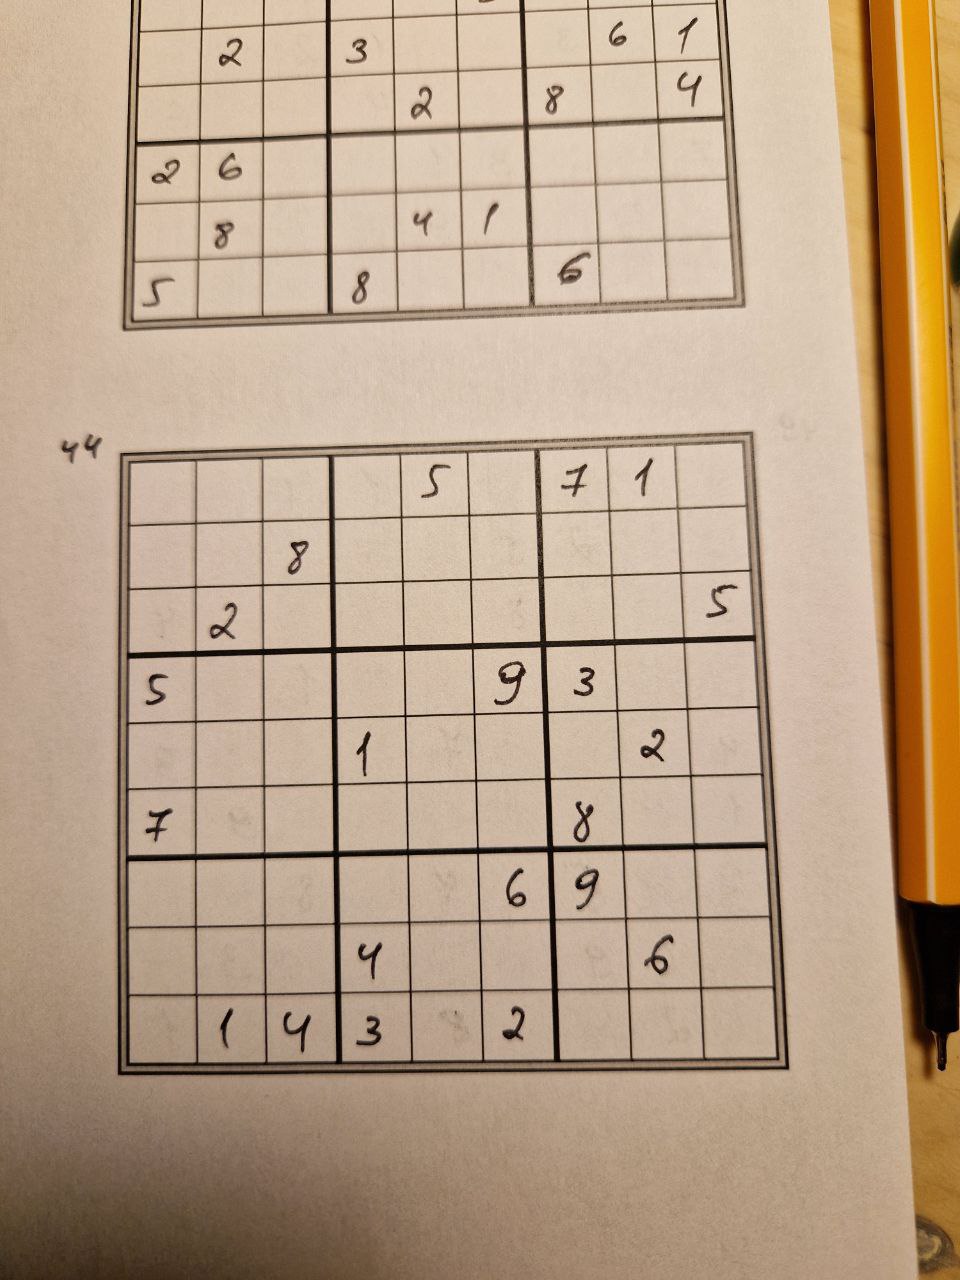 2 3 6 1
2 8 4
2 6
8 4 1
5 8 6
44
5 7 1
8
2 5
5 9 3
1 2
7 8
6 9
4 6
1 4 3 2